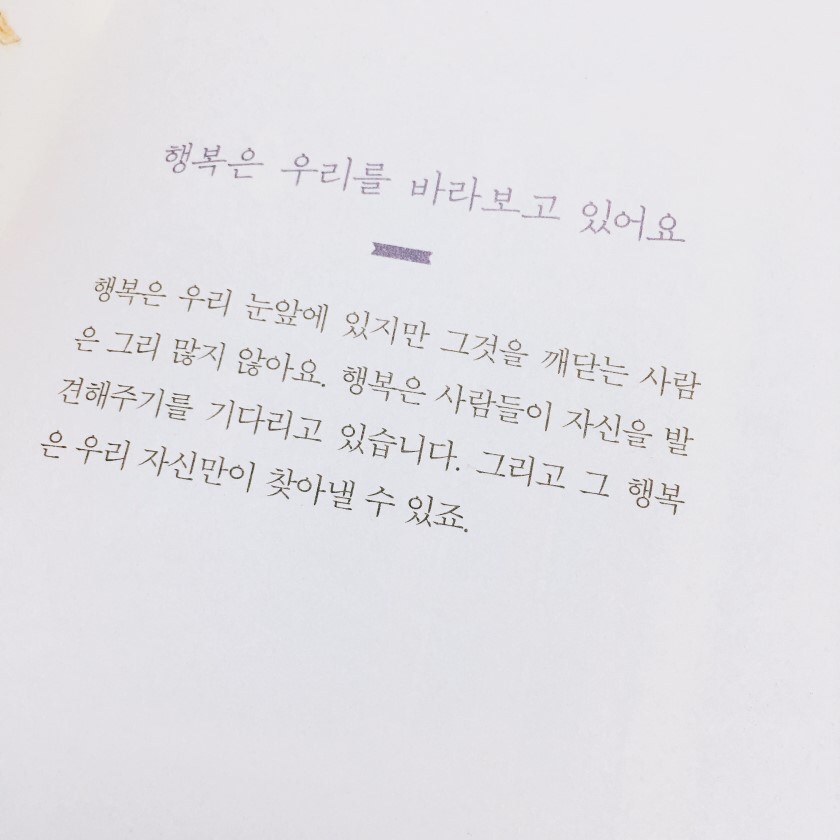 행복은 우리를 바라보고 있어요
행복은 우리 눈앞에 있지만 그것을 깨닫는 사람
은 그리 많지 않아요. 행복은 사람들이 자신을 발
견해주기를 기다리고 있습니다. 그리고 그 행복
은 우리 자신만이 찾아낼 수 있죠.